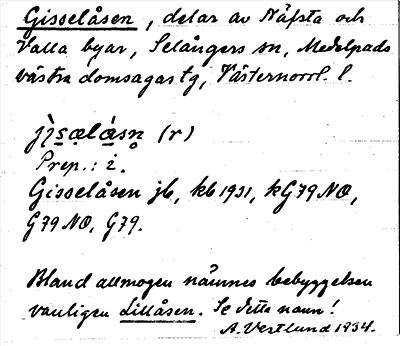 Gisselåsen, delar av Näfsta och
Valla byar, Selångers sn, Medelpads
västra domsagas tg, Västernorrl. l.
jìsælásn (r)
Prep.: i.
Gisselåsen jb, kb 1931, kG79NO,
G79NO, G79.
Bland allmogen nämnes bebyggelsen
vanligen Lillåsen. Se detta namn!
A. Vestlund 1934.